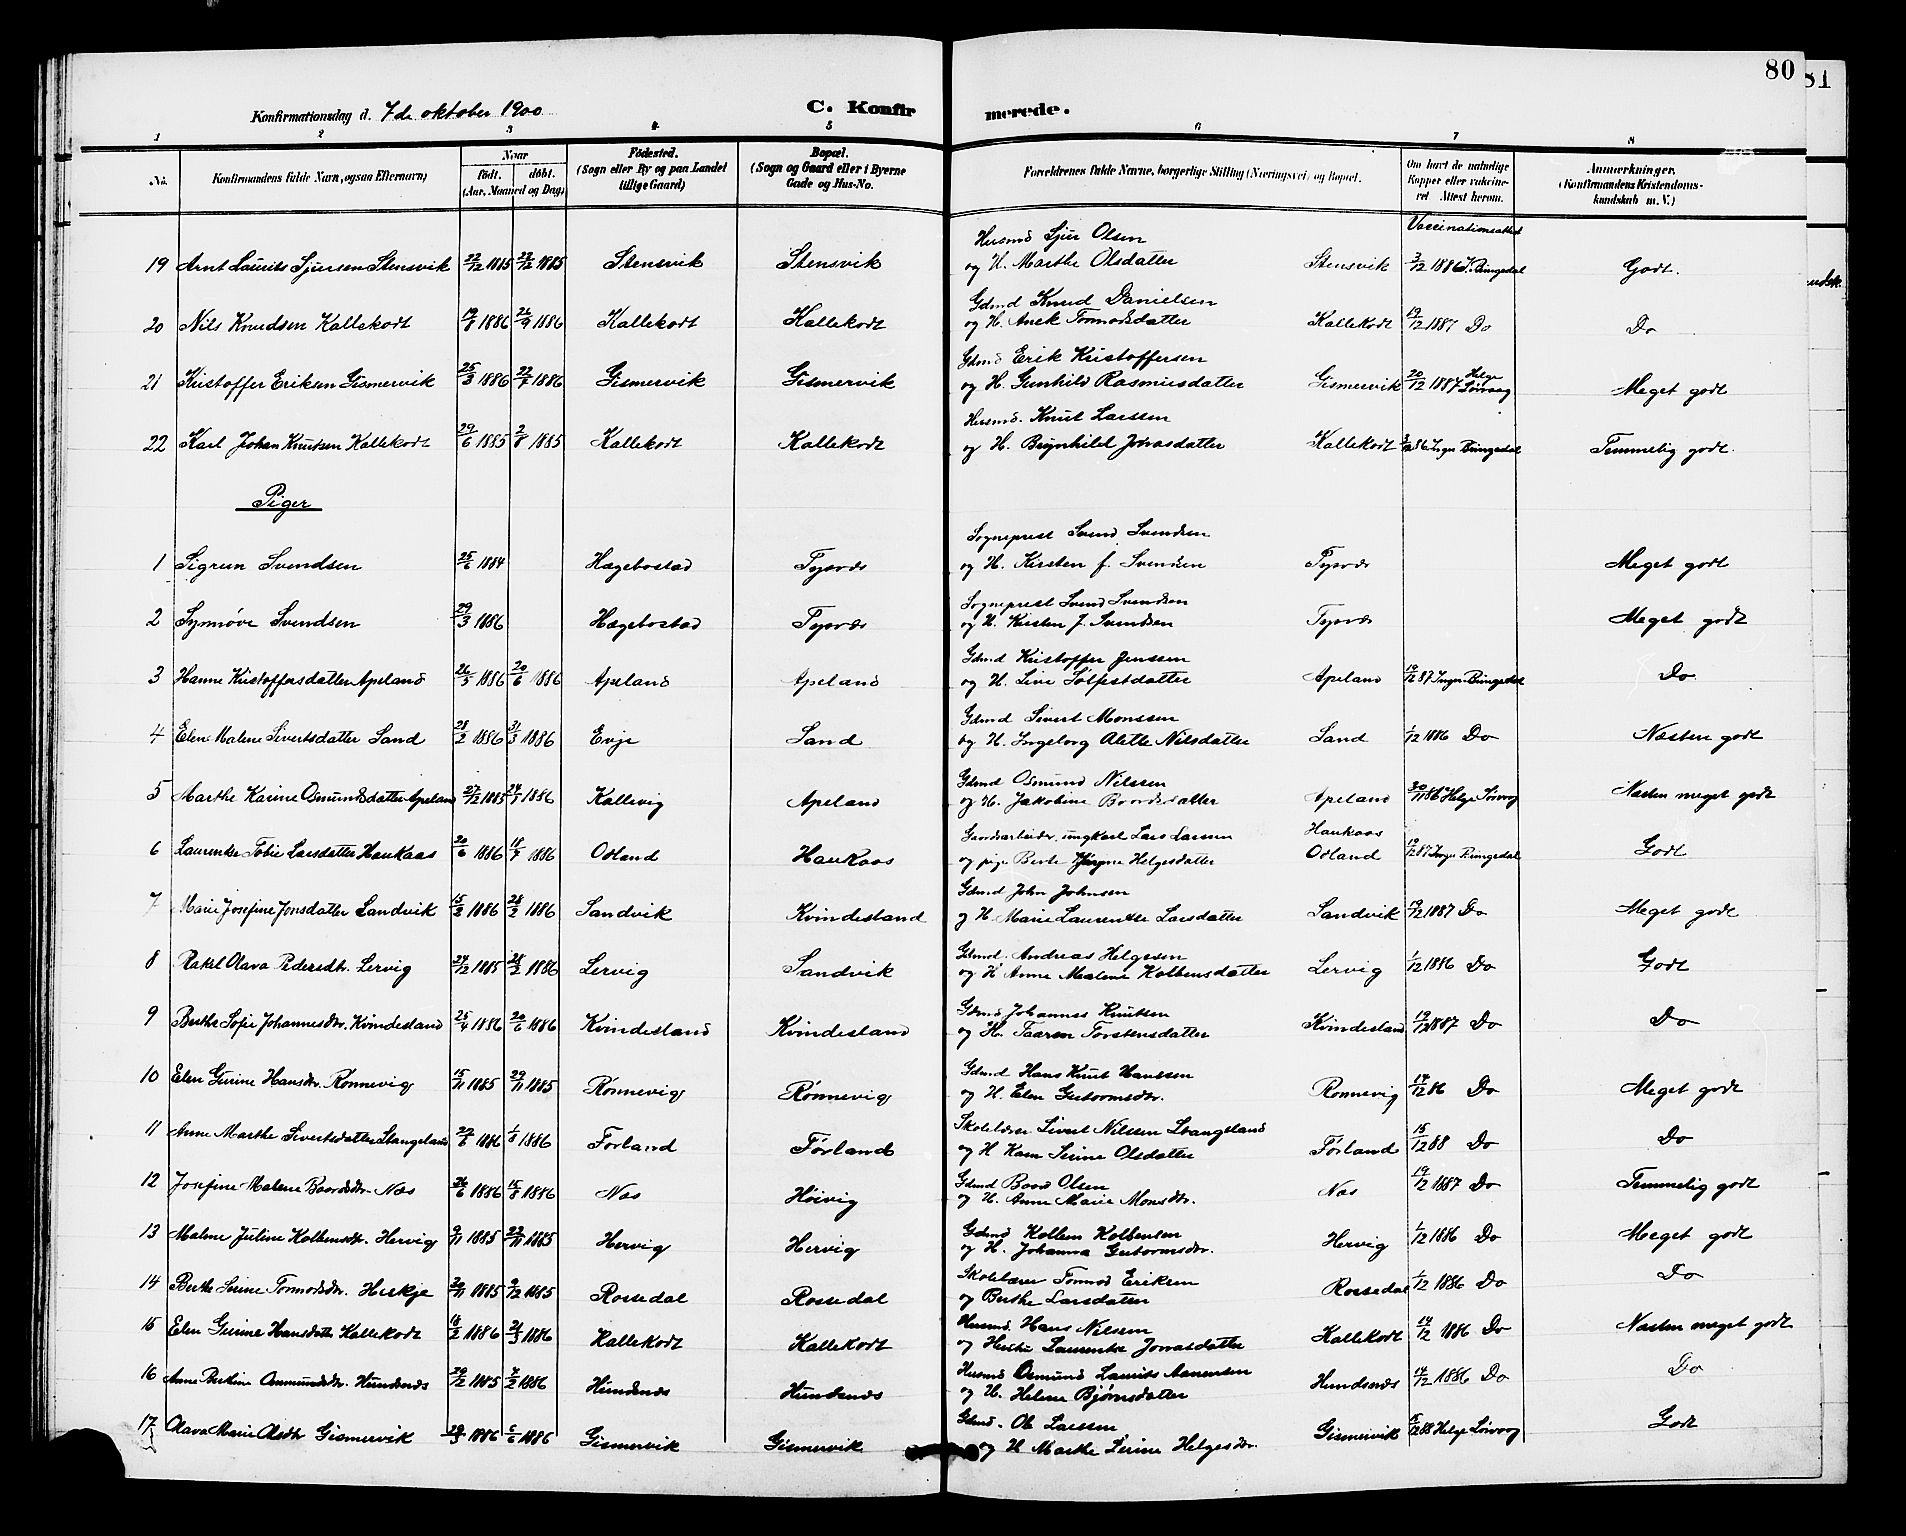 80
81
Konfirmationsdag d. 7de oktober 1900
C. Konfir
merede.
1 2 3 4 5 6 7 8
No. Konfirmandens fulde Navn, ogsaa Efternavn) Naar födt. döbt. (Aar, Maaned og Dag) Födested. (Sogn eller By og paa Landet tillige Gaard) Bopæl. (Sogn og Gaard eller i Byerne Gade og Hus-No. Forældrenes fulde Navne, borgerlige Stilling (Næringsvei) og Bopæl. Om havt de naturlige Kopper eller vaccineret Attest herom. Anmærkninger. (Konfirmandens Kristendomskundskab m. V.)
Vaccinationsattest
Husmd Sjur Olsen
19 Arnt Laurits Sjursen Stensvik 22/12 1885 27/12 1885 Stensvik Stensvik og H. Marthe Olsdatter Stensvik 3/12 1886 I. Ringedal Godt.
Gdmd Knud Danielsen
20 Nils Knudsen Kallekodt 19/8 1886 26/9 1886 Kallekodt Kallekodt og H. Anek Tormodsdatter Kallekodt 19/12 1887 Do Do
Gdmd Erik Kristoffersen
21 Kristoffer Eriksen Gismervik 25/3 1886 22/7 1886 Gismervik Gismervik og H. Gunhild Rasmusdatter Gismervik 20/12 1887 Helge Lörvaag Meget godt
Husmd. Knut Larssen
22 Karl Johan Knutsen Kallekodt 29/6 1885 2/8 1885 Kallekodt Kallekodt og H. Brynhild Jonasdatter Kallekodt 86 Ingv. Ringedal Temmelig godt.
Piger
Sogneprest Svend Svendsen
1 Sigrun Svendsen 25/6 1884 Hægebostad Tysvær og H. Kirsten f. Svendsen Tysvær Meget godt
Sogneprest Svend Svendsen
2 Synnöve Svendsen 29/3 1886 Hægebostad Tysvær og H. Kirsten f. Svendsen Tysvær Meget godt
Gdmd Kristoffer Jenssen
3 Hanne Kristoffersdatter Apeland 26/3 1886 20/6 1886 Apeland Apeland og H. Sölfestdatter Apeland 19/12 87 Ingv. Ringedal Do
Gdmd Sivert Monssen
4 Elen Malene Sivertsdatter Sand 28/2 1886 31/3 1886 Evje Sand og H. Ingeborg Alette Nilsdatter Sand 1/12 1886 Do Næsten godt
Gdmd Osmund Nilssen
5 Marthe Karine Osmundsdatter Apeland 27/12 1885 24/1 1886 Kallevig Apeland og H. Jakobine Baardsdatter Apeland 30/11 86 Helge Lörvog Næsten meget godt
Gaardsarbeider, ungkarl Lars Larsen Haukaas
6 Laurentze Tobie Larsdatter Haukaas 20/6 1886 18/7 1886 Odland Haukaas og pige Berte Jörgine Helgesdatter Odland 19/12 87 Ingv. Ringedal Godt
Gdmd John Johnsen
7 Marie Josefine Jonsdatter Sandvik 15/2 1886 28/2 1886 Sandvik Kvindesland og H. Marie Laurentse Larsdatter Sandvik 19/12 1887 Do Meget godt
Gdmd. Andreas Helgesen
8 Rakel Olava Pedersdtr. Lervig 24/12 1885 28/2 1886 Lervig Sandvik og H Anne Malene Kolbensdatter Lervig 1/12 1886 Do Godt
Gdmd Johannes Knutsen
9 Berthe Sofie Johannesdtr. Kvindesland 25/4 1886 20/6 1886 Kvindesland Kvindesland og H. Taaren Torstensdatter Kvindesland 19/12 1887 Do Do
Gdmd Hans Knut Hanssen
10 Elen Gurine Hansdtr. Rönnevig 15/11 1885 29/11 1885 Rönnevig Rönnevig og H. Elen Gutormsdtr. Ronnevig 14/12 86 Do Meget godt
Skolelærer Sivert Nilssen Stangeland
11 Anne Marthe Sivertsdatter Stangeland 27/6 1886 1/8 1886 Forland Förland og H Karn Serine Olsdatter Förland 15/12 88 Do Do
Gdmd Baard Olsen
12 Josefine Malene Baardsdtr. Næs 26/6 1886 15/8 1886 Næs Höivig og H. Anne Marie Monsdtr. Næs 19/12 1887 Do Temmelig godt
Gdmd Kolben Kolbensen
13 Malene Juline Kolbensdtr. Hervig 9/11 1885 22/11 1885 Hervig Hervig og H. Johanna Gutormsdtr. Hervig 1/12 1886 Do Meget godt
Skolelærer Tormod Eriksen
14 Berthe Serine Tormodsdtr. Heskje 20/11 1885 9/12 1885 Rossedal Rossedal og Berthe Larsdatter Rossedal 1/12 1886 Do Do
Husmd Hans Nilsen
15 Elen Gurine Hansdatter Kallekodt 18/2 1886 21/3 1886 Kallekodt Kallekodt og Hustru Laurentze Jonasdatter Kallekodt 14/12 1886 Do Næsten meget godt
Husmd Osmund Laurits Aanensen
16 Anne Bertine Osmundsdtr. Hundsnæs 20/12 1885 7/2 1886 Hundsnæs Hundsnæs og H. Helene Bjørnsdatter Hundsnæs 14/12 1886 Do Do
Gdmd. Ole Larssen
17 Olava Marie Olsdtr Gismervik 29/3 1886 6/6 1886 Gismervik Gismervik og H Marthe Serine Helgesdtr. Gismervik 88 Helge Lörvaag Godt